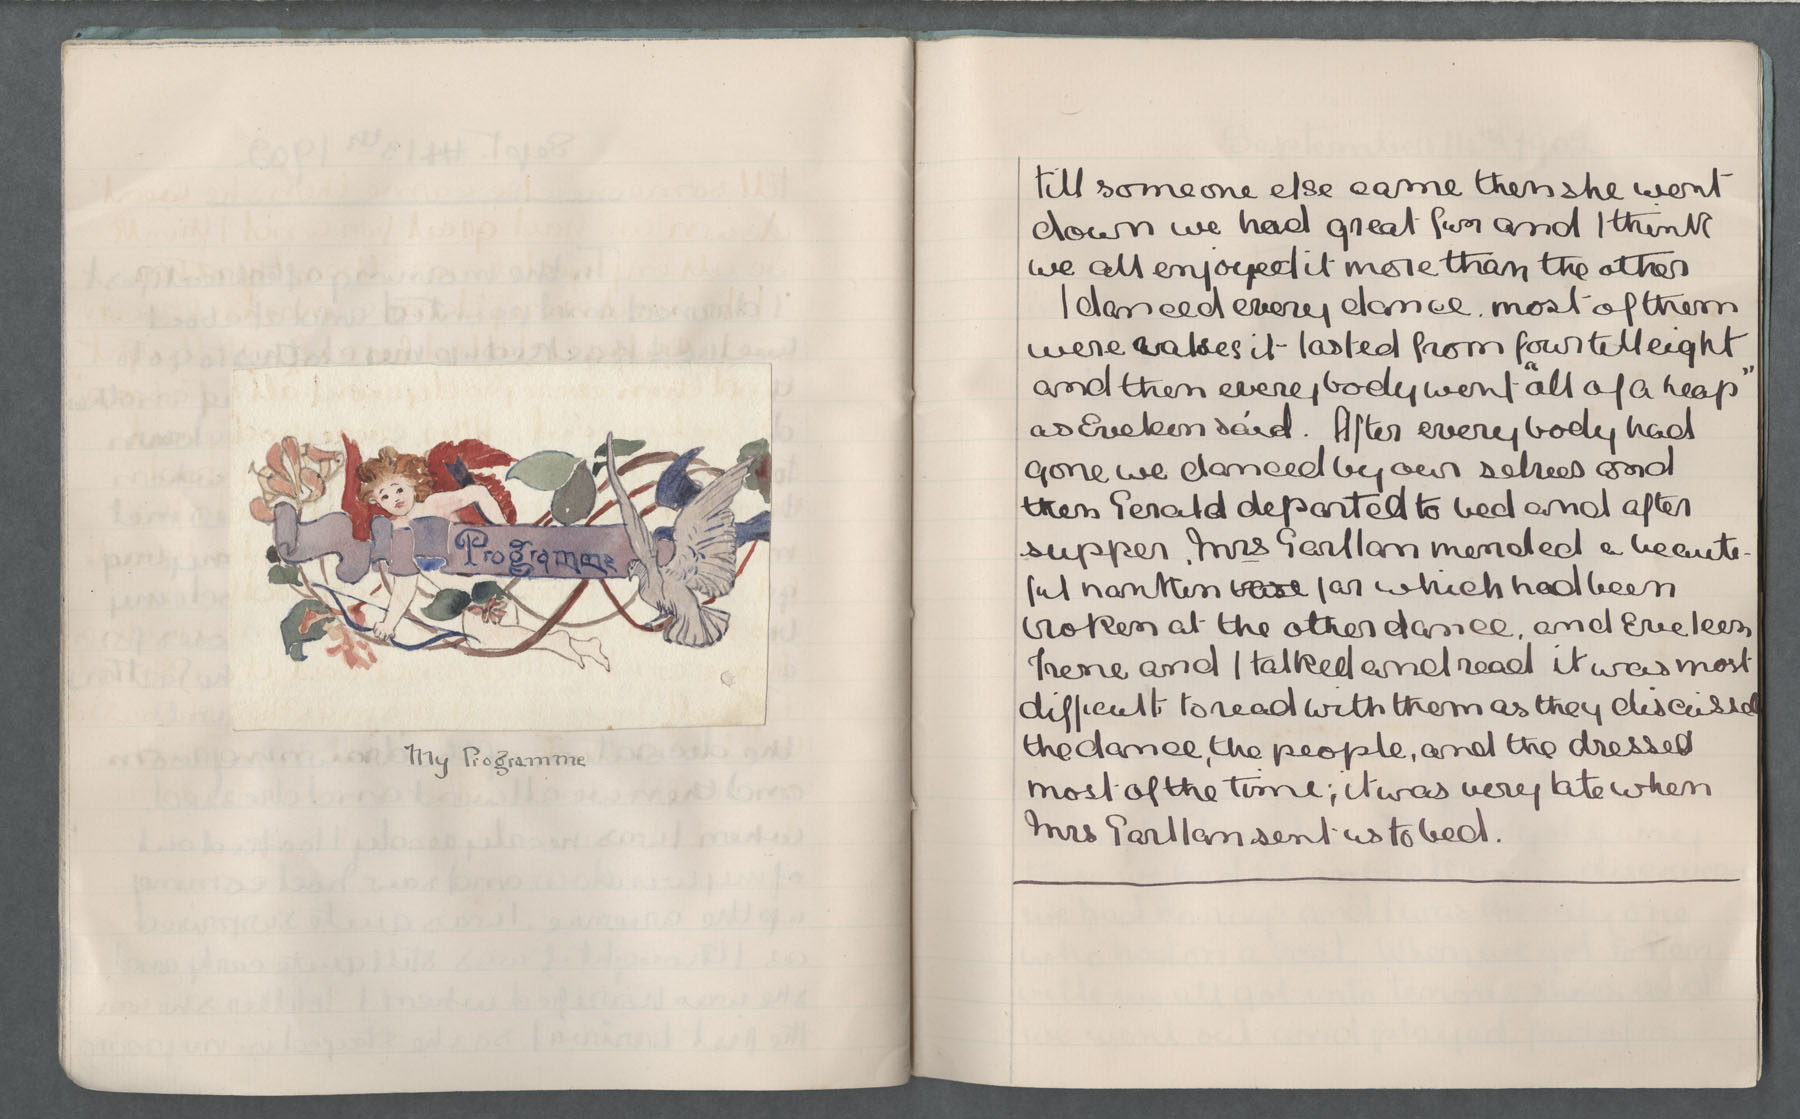 Programme
My Programme
till someone else came then she went
down we had great fun and I think
we all enjoyed it more than the other
I danced every dance. most of them
were valses it lasted from four till eight
and then everybody went "all of a heap"
as Eveleen said. After everybody had
gone we danced by our selves and
then Gerald departed to bed and after
supper, Mrs Garllan mended a beauti-
ful nanken vase jar which had been
broken at the other dance, and Eveleen
Irene and I talked and read it was most
difficult to read with them as they discussed
the dance, the people, and the dresses
most of the time; it was very late when
Mrs Garllan sent us to bed.